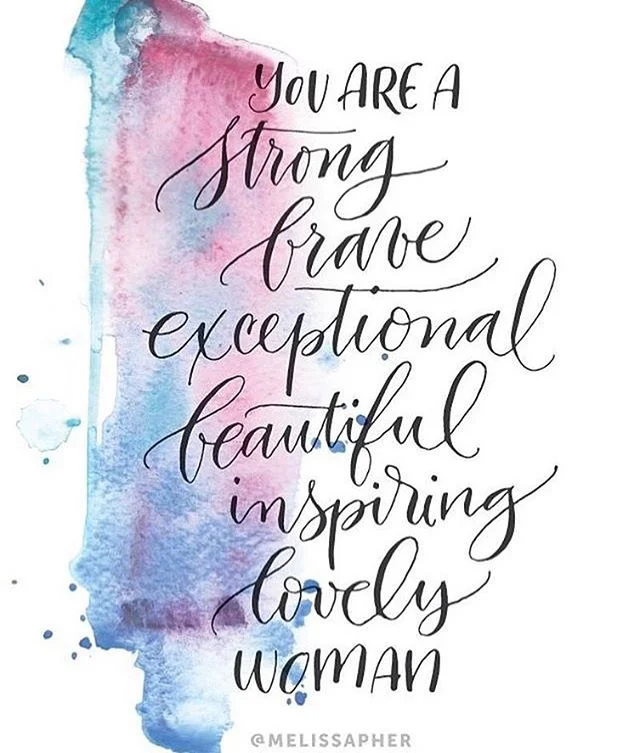 YOU ARE A
strong
brave
exceptional
beautiful
inspiring
lovely
WOMAN
@MELISSAPHER